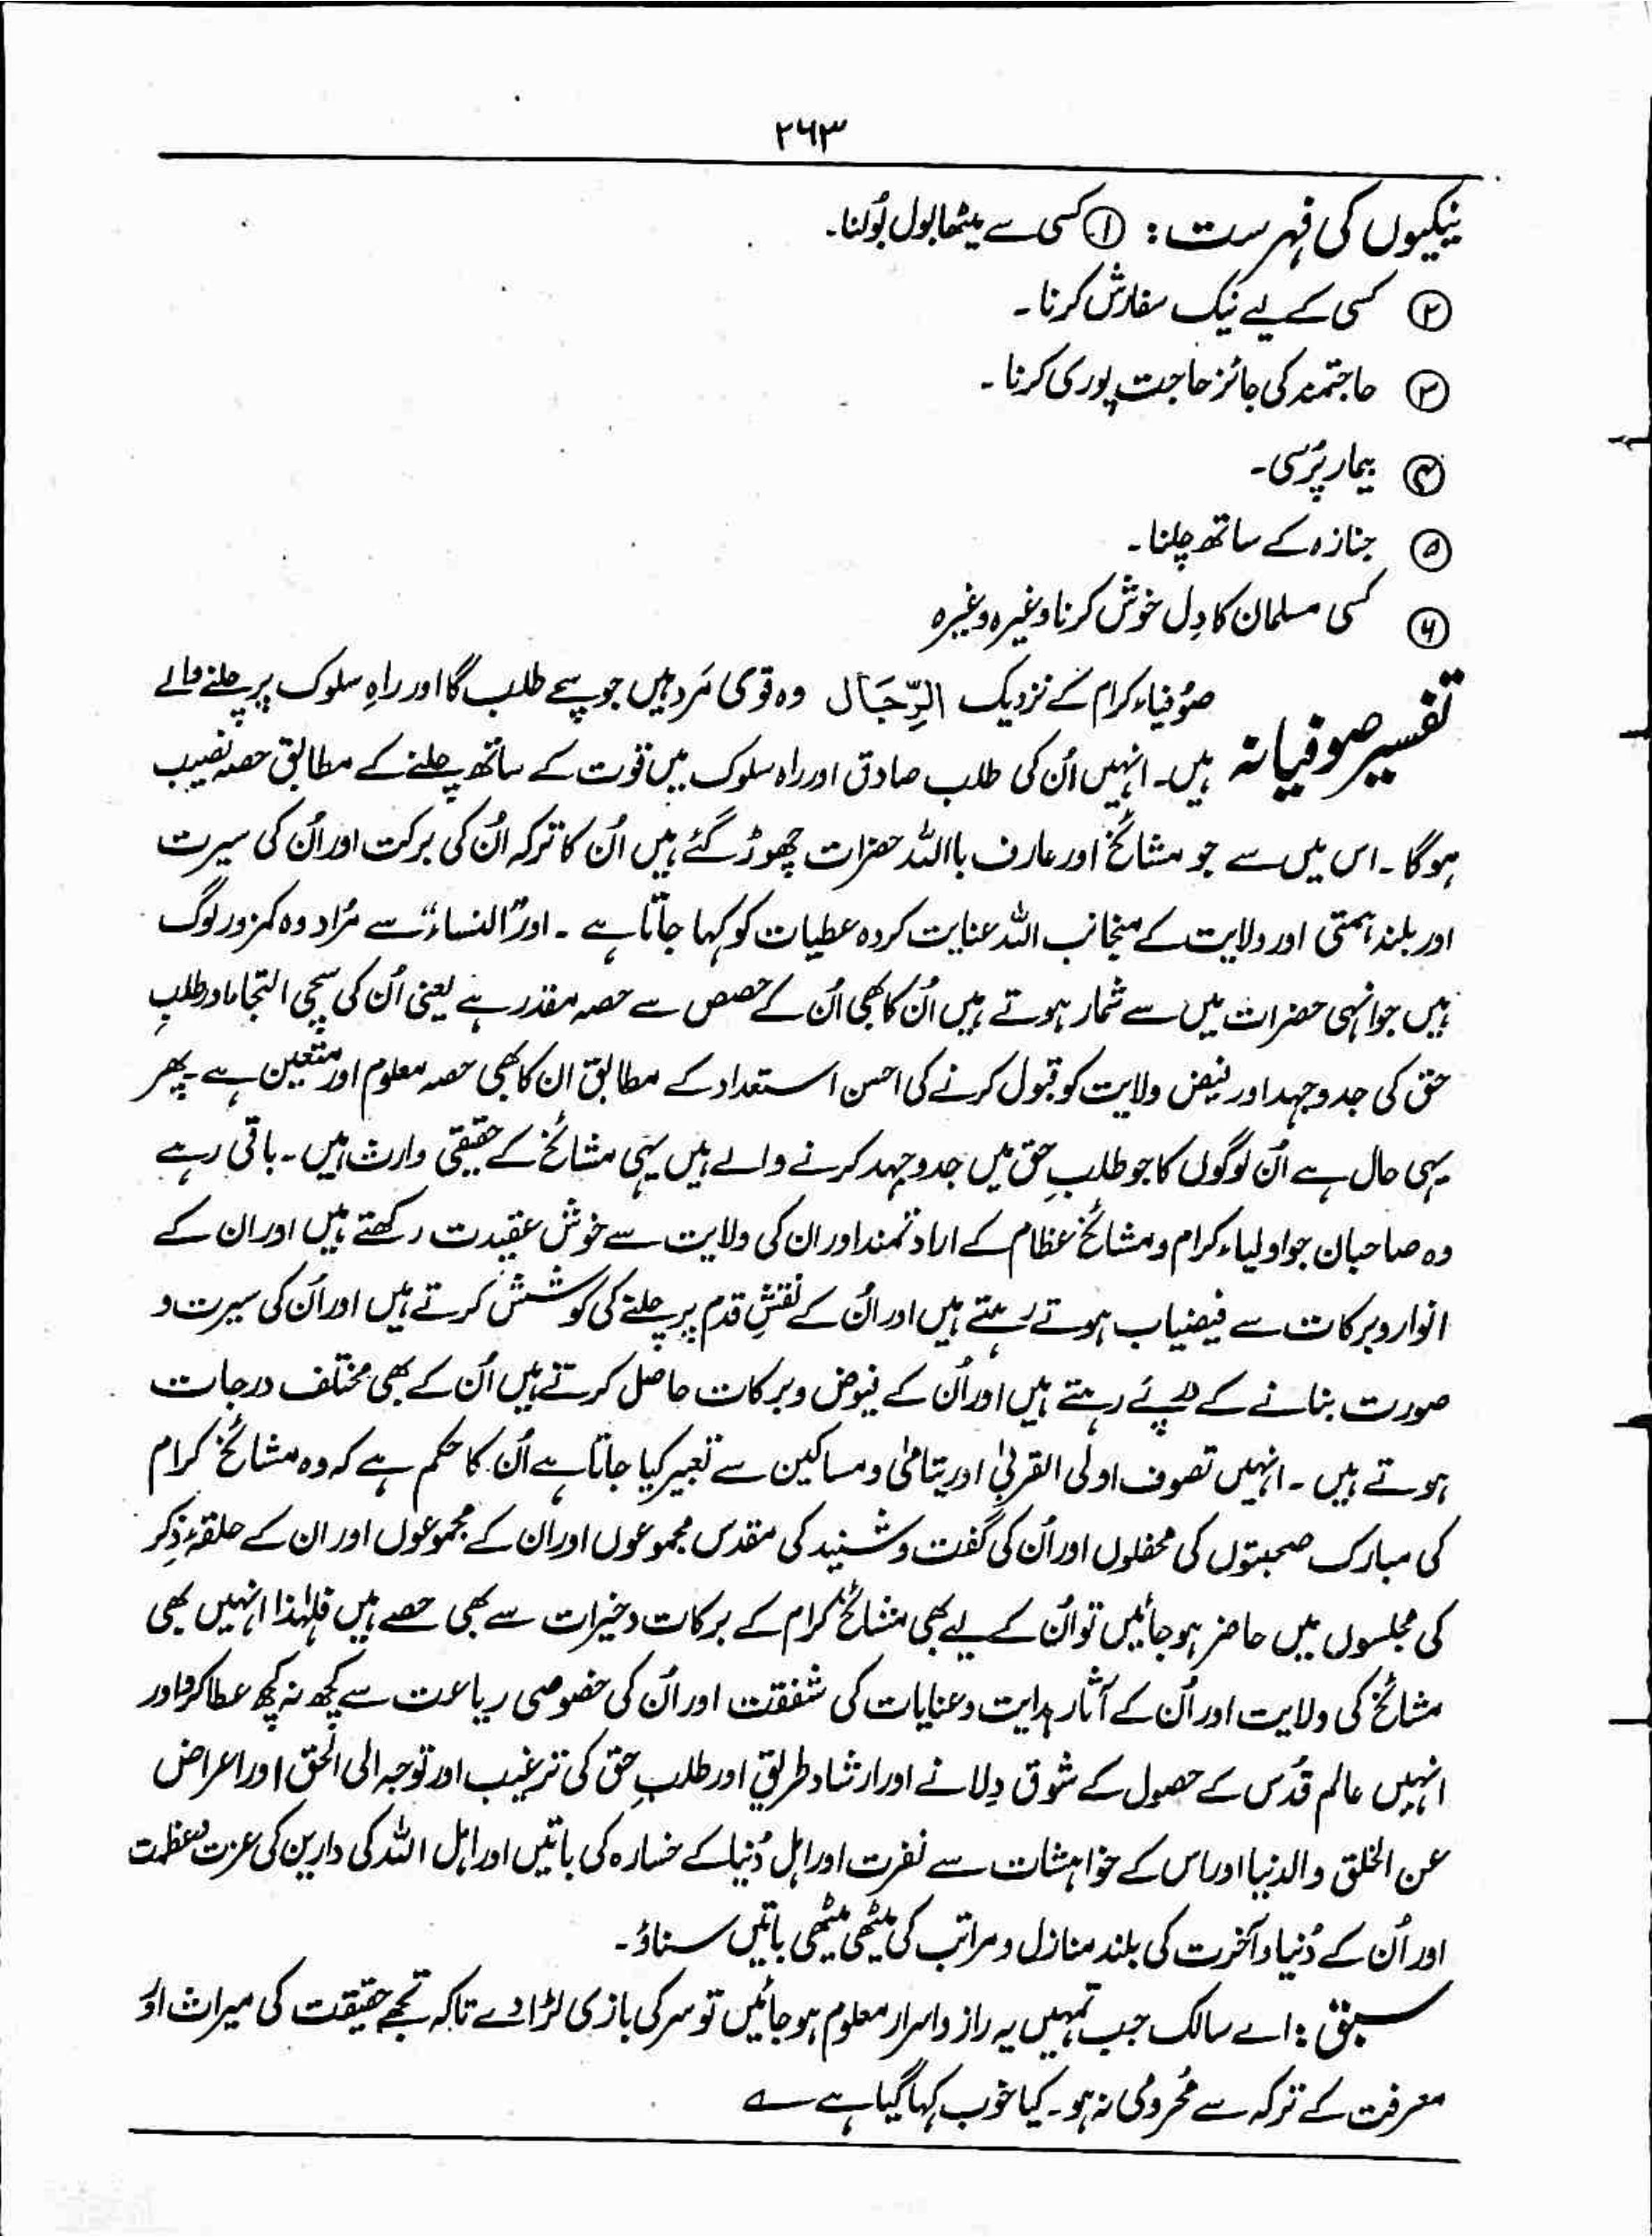 ۲۶۳
نیکیوں کی فہرست : ① کسی سے میٹھا بول بُولنا۔
② کسی کے لیے نیک سفارش کرنا۔
③ حاجتمند کی جائز حاجت پوری کرنا۔
④ بیمار پُرسی۔
⑤ جنازہ کے ساتھ چلنا۔
⑥ کسی مسلمان کا دِل خوش کرنا وغیرہ وغیرہ
تفسیر صوفیانہ صُوفیاء کرام کے نزدیک الرِّجَال وہ قوی مَرد ہیں جو سچے طلب گا اور راہِ سلوک پر چلنے والے
ہیں۔ انہیں اُن کی طلب صادق اور راہ سلوک میں قوت کے ساتھ چلنے کے مطابق حصہ نصیب
ہو گا۔ اس میں سے جو مشائخ اور عارف باللہ حضرات چھوڑ گئے ہیں اُن کا ترکہ اُن کی برکت اور اُن کی سیرت
اور بلند ہمتی اور ولایت کے منجانب اللہ عنایت کردہ عطیات کو کہا جاتا ہے۔ اور "النساء" سے مُراد وہ کمزور لوگ
ہیں جو انہی حضرات میں سے شمار ہوتے ہیں اُن کا بھی اُن کے حصص سے حصہ مقدر ہے یعنی اُن کی سچی التجاء اور طلبِ
حق کی جد و جہد اور فیض ولایت کو قبول کرنے کی احسن استعداد کے مطابق ان کا بھی حصہ معلوم اور متعین ہے۔ پھر
یہی حال ہے اُن لوگوں کا جو طلبِ حق میں جدوجہد کرنے والے ہیں یہی مشائخ کے حقیقی وارث ہیں۔ باقی رہے
وہ صاحبان جو اولیاء کرام و مشائخ عظام کے ارادتمند اور ان کی ولایت سے خوش عقیدت رکھتے ہیں اور ان کے
انوار و برکات سے فیضیاب ہوتے رہتے ہیں اور اُن کے نقشِ قدم پر چلنے کی کوشش کرتے ہیں اور اُن کی سیرت و
صورت بنانے کے درپئے رہتے ہیں اور اُن کے فیوض و برکات حاصل کرتے ہیں اُن کے بھی مختلف درجات
ہوتے ہیں۔ انہیں تصوف اولی القربیٰ اور یتامٰی و مساکین سے تعبیر کیا جاتا ہے اُن کا حکم ہے کہ وہ مشائخ کرام
کی مبارک صحبتوں کی محفلوں اور اُن کی گفت و شنید کی مقدس مجموعوں اور ان کے مجموعوں اور ان کے حلقۂ ذِکر
کی مجلسوں میں حاضر ہو جائیں تو اُن کے لیے بھی مشائخ کرام کے برکات و خیرات سے بھی حصے ہیں فلہٰذا انہیں بھی
مشائخ کی ولایت اور اُن کے آثار ہدایت و عنایات کی شفقت اور اُن کی خصوصی رباعت سے کچھ نہ کچھ عطا کرو اور
انہیں عالم قُدس کے حصول کے شوق دِلانے اور ارشاد طریق اور طلبِ حق کی ترغیب اور توجہ الی الحق اور اعراض
عن الخلق والدنیا اور اس کے خواہشات سے نفرت اور اہل دُنیا کے خسارہ کی باتیں اور اہل اللہ کی دارین کی عزت و عظمت
اور اُن کے دُنیا و آخرت کی بلند منازل و مراتب کی میٹھی میٹھی باتیں سناؤ۔
سبق : اے سالک جب تمہیں یہ راز و اسرار معلوم ہو جائیں تو سر کی بازی لڑا دے تاکہ تجھے حقیقت کی میراث اوُ
معرفت کے ترکہ سے مُحرومی نہ ہو۔ کیا خوب کہا گیا ہے ؎